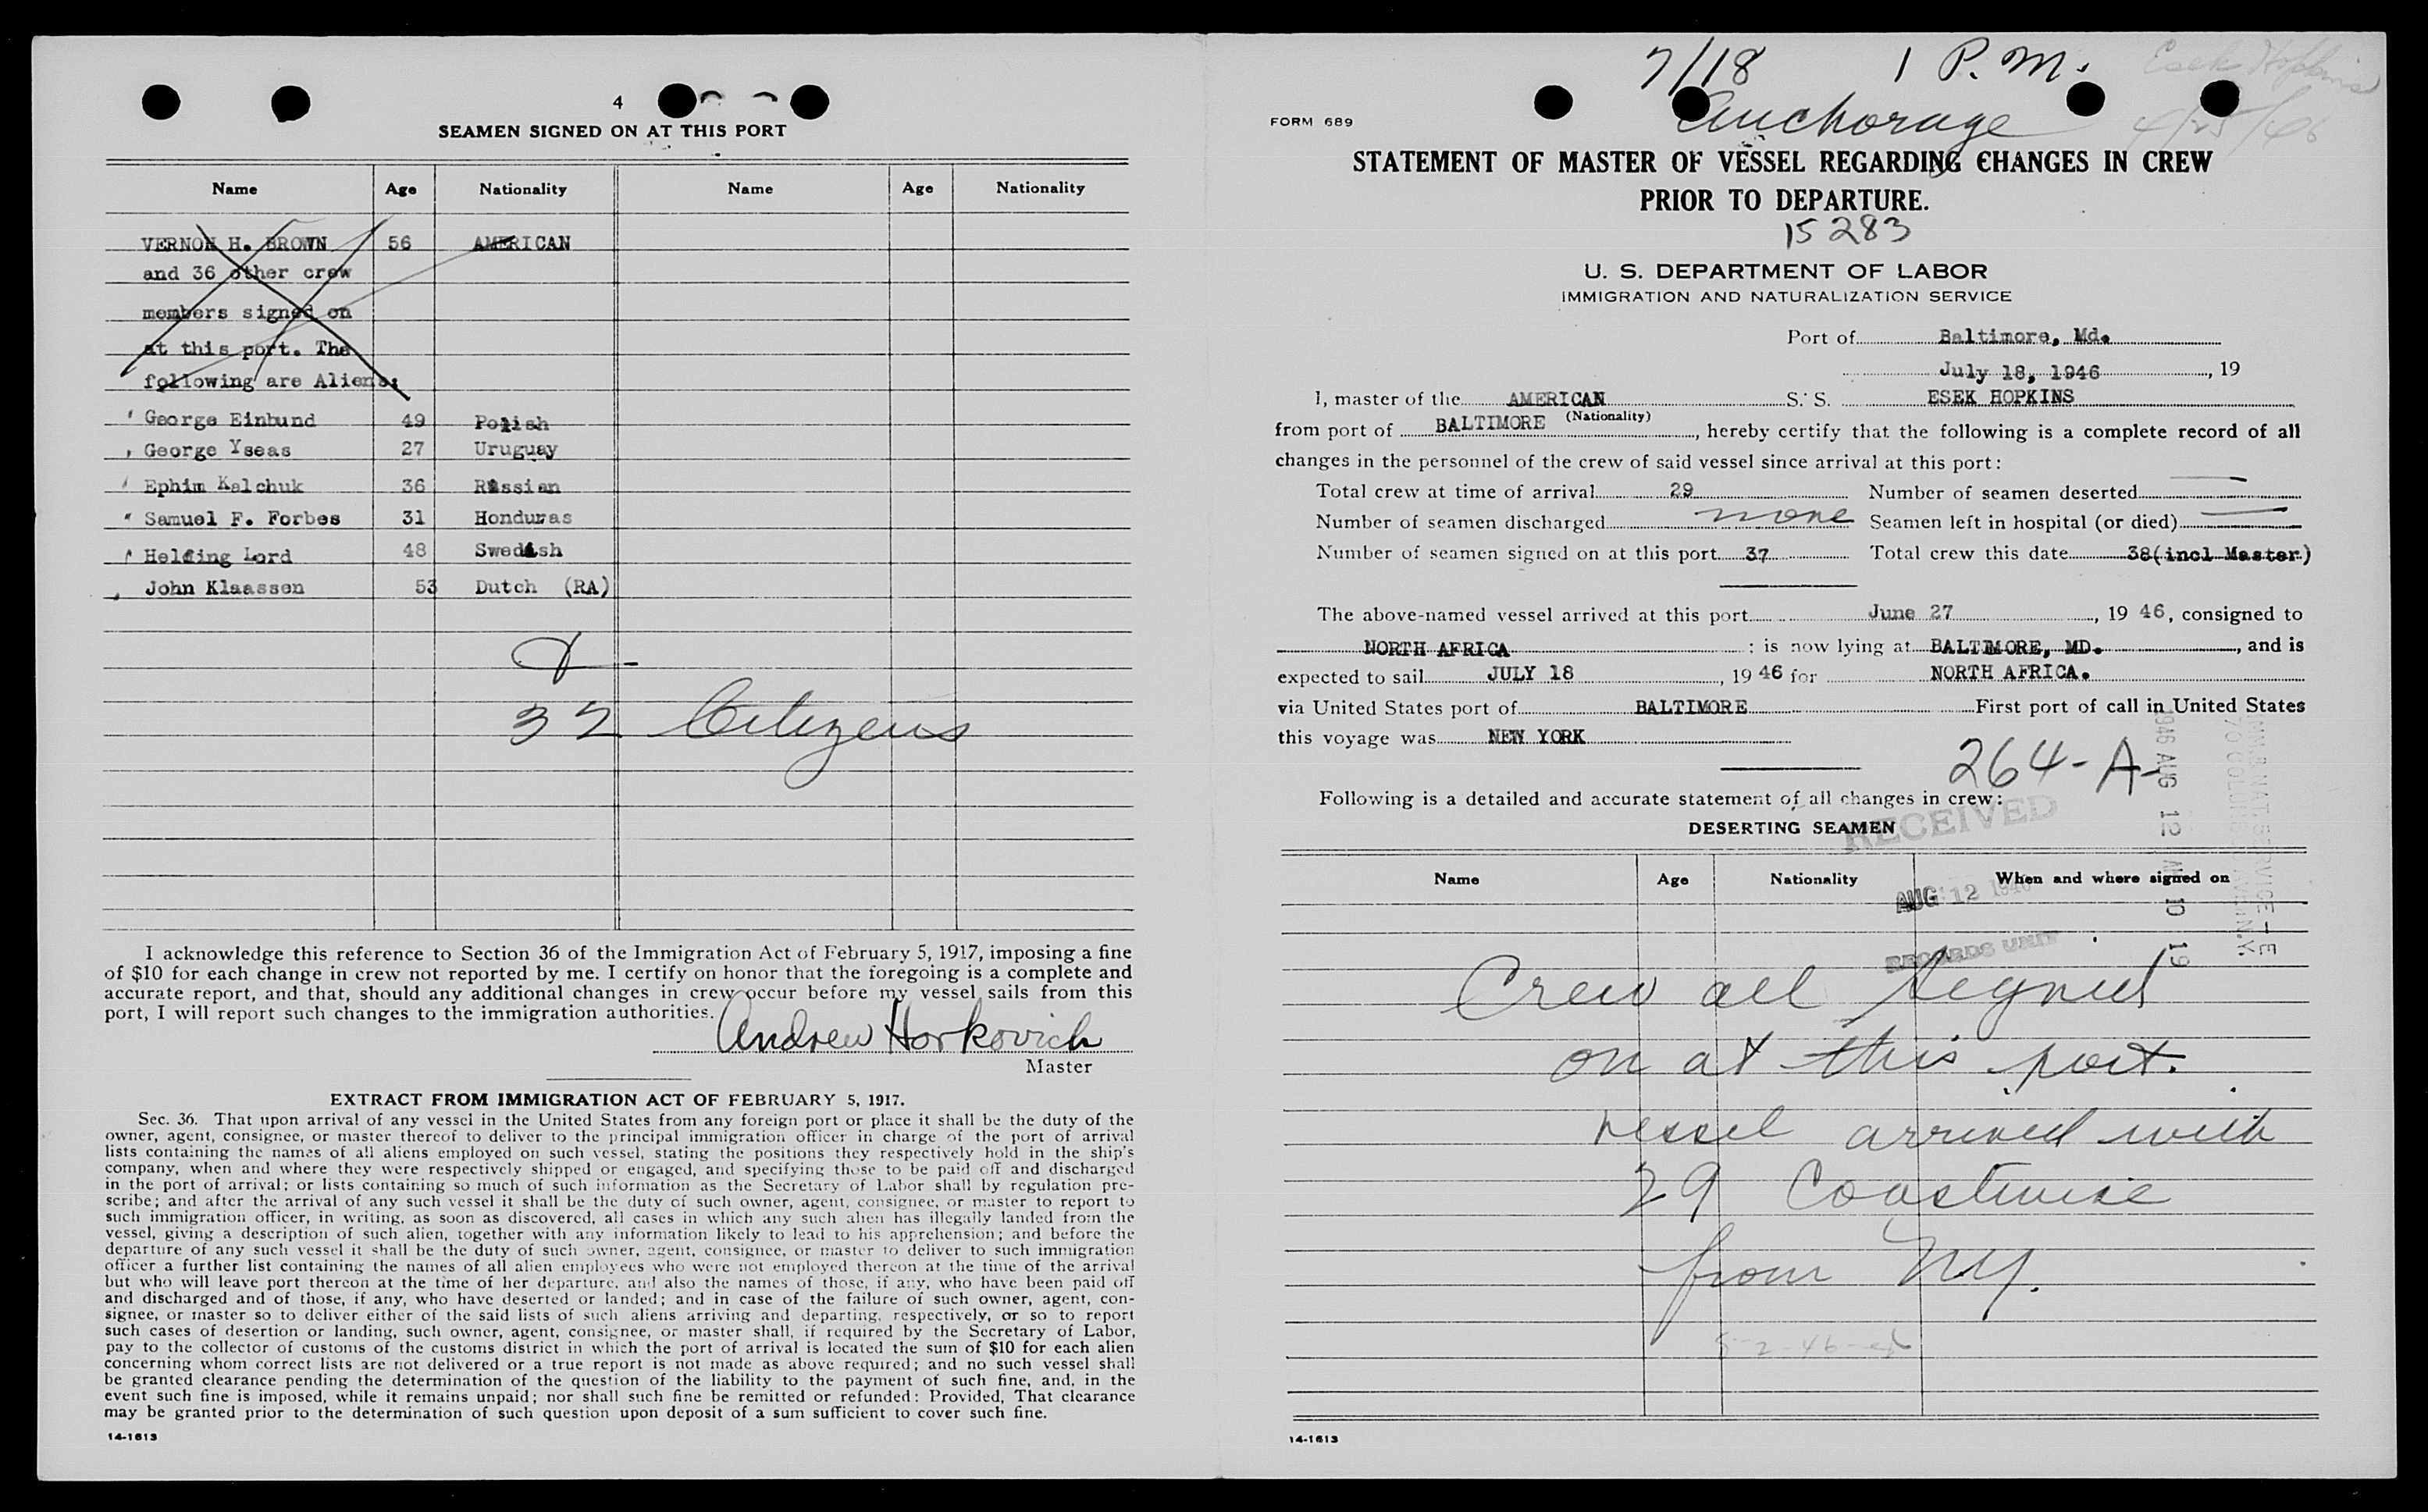 4
SEAMEN SIGNED ON AT THIS PORT
Name Age Nationality Name Age Nationality
VERNON H. BROWN 56 AMERICAN
and 36 other crew
members signed on
at this port. The
following are Aliens:
George Einbund 49 Polish
George Yseas 27 Uruguay
Ephim Kalchuk 36 Russian
Samuel F. Forbes 31 Honduras
Helfing Lord 48 Swedish
John Klaassen 53 Dutch (RA)
32 Citizens
I acknowledge this reference to Section 36 of the Immigration Act of February 5, 1917, imposing a fine
of $10 for each change in crew not reported by me. I certify on honor that the foregoing is a complete and
accurate report, and that, should any additional changes in crew occur before my vessel sails from this
port, I will report such changes to the immigration authorities.
Andrew Horkovich
Master
EXTRACT FROM IMMIGRATION ACT OF FEBRUARY 5, 1917.
Sec. 36. That upon arrival of any vessel in the United States from any foreign port or place it shall be the duty of the
owner, agent, consignee, or master thereof to deliver to the principal immigration officer in charge of the port of arrival
lists containing the names of all aliens employed on such vessel, stating the positions they respectively hold in the ship's
company, when and where they were respectively shipped or engaged, and specifying those to be paid off and discharged
in the port of arrival; or lists containing so much of such information as the Secretary of Labor shall by regulation pre-
scribe; and after the arrival of any such vessel it shall be the duty of such owner, agent, consignee, or master to report to
such immigration officer, in writing, as soon as discovered, all cases in which any such alien has illegally landed from the
vessel, giving a description of such alien, together with any information likely to lead to his apprehension; and before the
departure of any such vessel it shall be the duty of such owner, agent, consignee, or master to deliver to such immigration
officer a further list containing the names of all alien employees who were not employed thereon at the time of the arrival
but who will leave port thereon at the time of her departure, and also the names of those, if any, who have been paid off
and discharged and of those, if any, who have deserted or landed; and in case of the failure of such owner, agent, con-
signee, or master so to deliver either of the said lists of such aliens arriving and departing, respectively, or so to report
such cases of desertion or landing, such owner, agent, consignee, or master shall, if required by the Secretary of Labor,
pay to the collector of customs of the customs district in which the port of arrival is located the sum of $10 for each alien
concerning whom correct lists are not delivered or a true report is not made as above required; and no such vessel shall
be granted clearance pending the determination of the question of the liability to the payment of such fine, and, in the
event such fine is imposed, while it remains unpaid; nor shall such fine be remitted or refunded: Provided, That clearance
may be granted prior to the determination of such question upon deposit of a sum sufficient to cover such fine.
14-1613
7/18 1 P.M.
Esek Hopkins
Anchorage
4/25/46
FORM 689
STATEMENT OF MASTER OF VESSEL REGARDING CHANGES IN CREW
PRIOR TO DEPARTURE.
15283
U. S. DEPARTMENT OF LABOR
IMMIGRATION AND NATURALIZATION SERVICE
Port of Baltimore, Md.
July 18, 1946, 19
I, master of the AMERICAN S. S. ESEK HOPKINS
(Nationality)
from port of BALTIMORE, hereby certify that the following is a complete record of all
changes in the personnel of the crew of said vessel since arrival at this port:
Total crew at time of arrival 29 Number of seamen deserted —
Number of seamen discharged none Seamen left in hospital (or died) —
Number of seamen signed on at this port 37 Total crew this date 38(incl Master)
The above-named vessel arrived at this port June 27, 1946, consigned to
NORTH AFRICA; is now lying at BALTIMORE, MD., and is
expected to sail JULY 18, 1946 for NORTH AFRICA.
via United States port of BALTIMORE First port of call in United States
this voyage was NEW YORK
264-A-
Following is a detailed and accurate statement of all changes in crew:
DESERTING SEAMEN
RECEIVED
Name Age Nationality When and where signed on
AUG 12 1946
RECORDS UNIT
1946 AUG 12 AM 10 19
Crew all signed
on at this port.
Vessel arrived with
29 Coastwise
from NY.